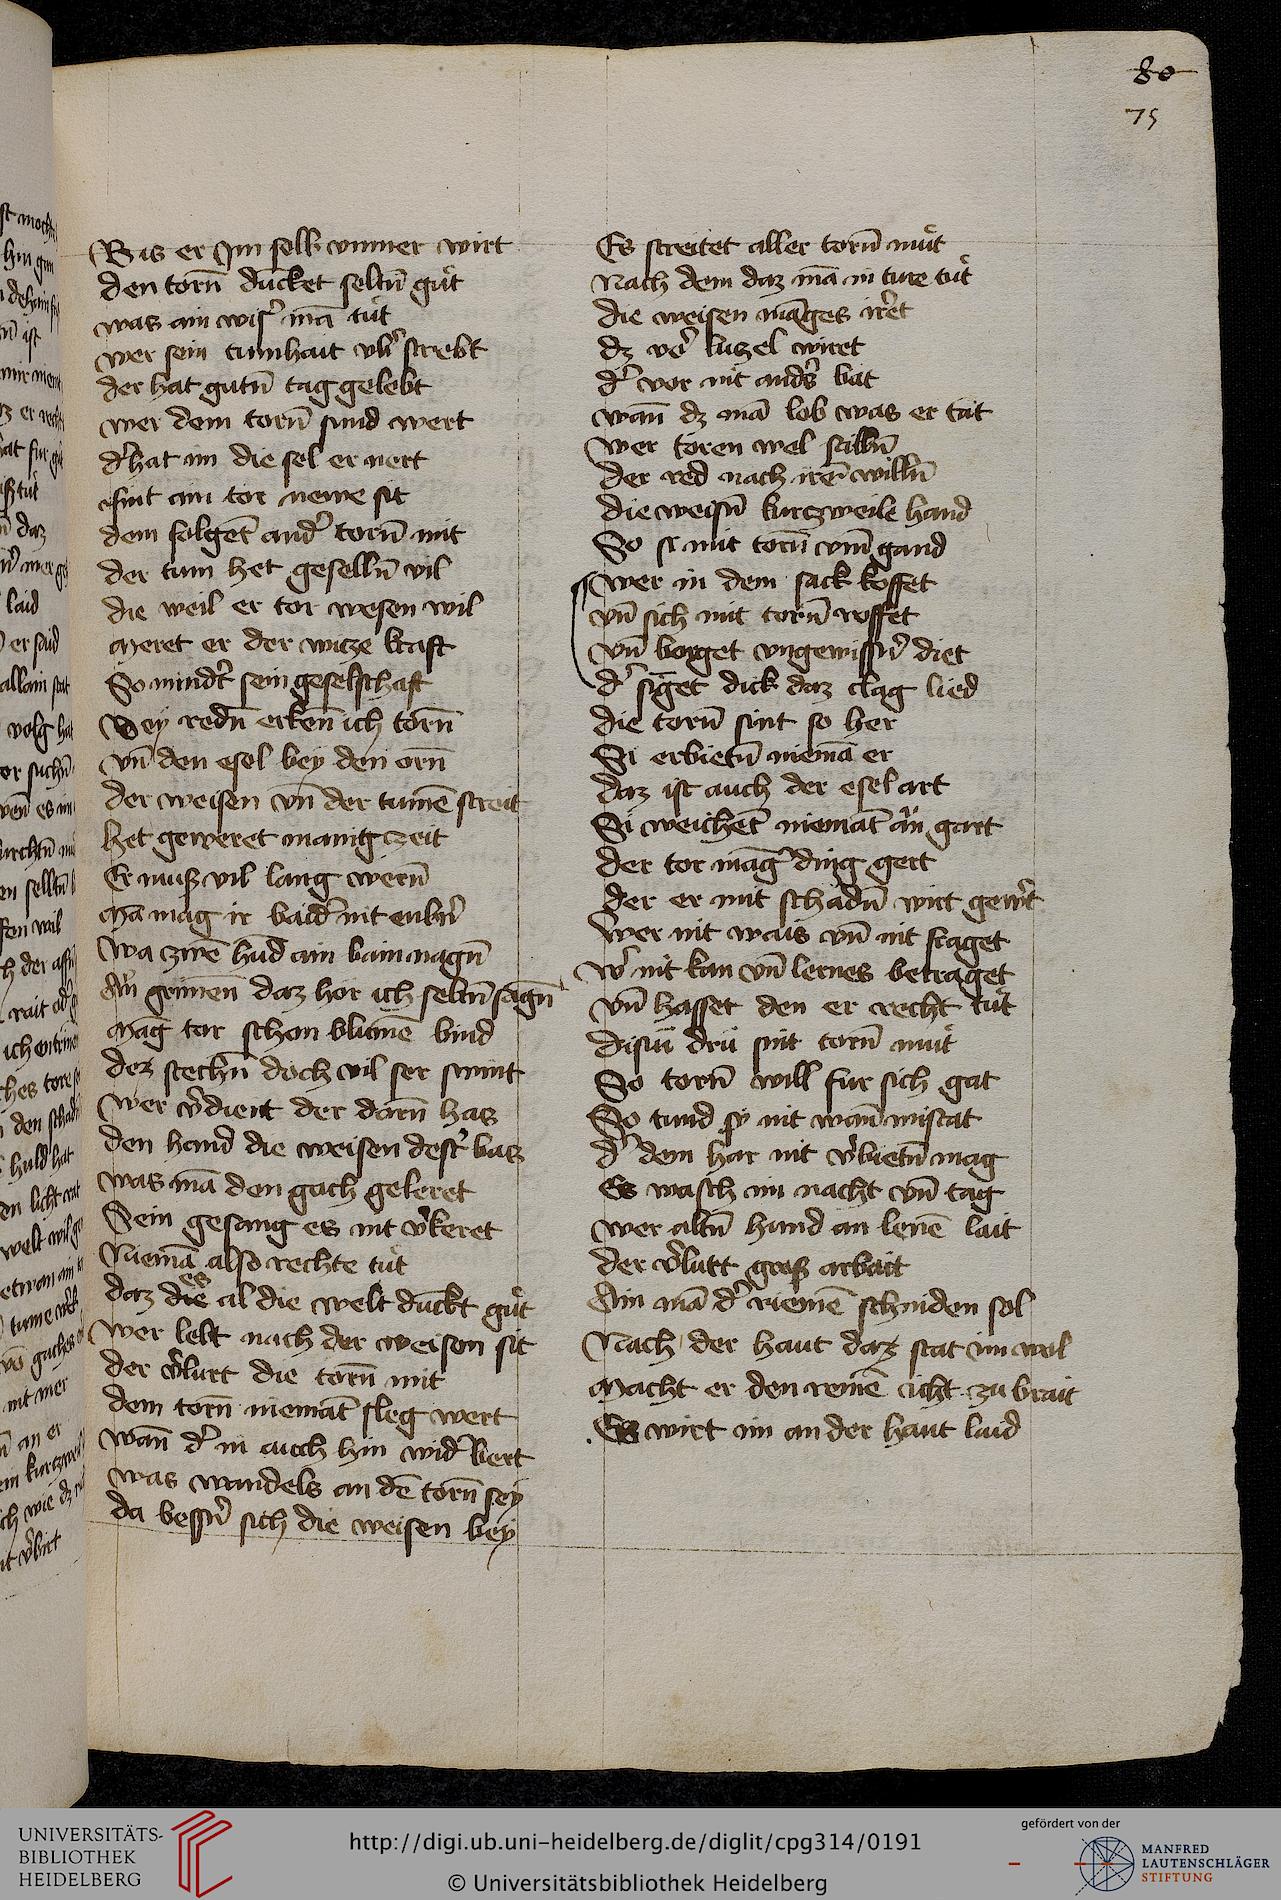 80
75
Bis er Im selb vnmer wirt
den torn̄ dūcket seltn̄ guͤt
was ain wis' mā tuͤt
wer sein tumhait vb' strebt
der hat gutn̄ tag gelebt
wer dem torn̄ sund wert
d' hat im die sel er nert
sint ain tor newe sit
dem folgēt and' torn̄ mit
der tum het geselln̄ vil
die weil er tor wesen wil
meret er der witze kraft
So mindt' sein geselschaft
Bey redn̄ erken̄ ich torn̄
vn̄ den esel bey den orn̄
der weisen vn̄ der tumē streit
het geweret manig zeit
Er muß vil lang wern̄
mā mag ir baid' nit enbn̄
wa zwē hūd ain bain nagn̄
An̄ grimen daz hor ich seltn̄ sagn̄
mag tor schon blumē bind
dez stechn̄ doch vil ser swint
wer v'dient der dorn̄ has
den hand die weisen dest' bas
was mā den gach geleret
Sein gesang es nit v'keret
Niemā also rechte tuͤt
daz es al die welt dūckt guͤt
wer lebt nach der weisen sit
der v'lurt die torn̄ mit
dem torn̄ niemāt sleg wert
wan̄ d' in auch hin wid' bert
was wandels an dē torn̄ sey
da bessn̄ sich die weisen bey
Es streitet aller torn̄ muͤt
Nach dem daz mā in ture tuͤt
die weisen māges irret
dz vō luzel wiret
d' vor nit and's bat
wan̄ dz mā lob was er tat
wer toren wel stilln̄
der red nach irer willn̄
die weisn̄ kurtzweile hand
So si mit torn̄ vm̄ gand
wer in dem sack koffet
vn̄ sich mit torn̄ roffet
vn̄ borget vngewissn̄ diet
d' siget dick daz clag lied
die torn̄ sint so her
Si erbietn̄ niemā er
daz ist auch der esel art
Si weichēt niemāt an̄ gart
der tor mag ding gert
der er mit schadn̄ wirt gew't
wer nit wais vn̄ nit fraget
w' nit kan vn̄ lernes betraget
vn̄ hasset den er recht tuͤt
disiu drü sint torn̄ muͤt
So torn̄ will fur sich gat
So tund sy nit wan̄ mistat
d' dem har nit v'bietn̄ mag
Es wasch im nacht vn̄ tag
wer altn̄ hund an lenē lait
der v'lutt groß arbait
Ain mā d' riemē schniden sol
Nach der haut daz stat im wol
macht er den remē icht zu brait
Es wirt im an der haut laid
UNIVERSITÄTS-
BIBLIOTHEK
HEIDELBERG
http://digi.ub.uni-heidelberg.de/diglit/cpg314/0191
© Universitätsbibliothek Heidelberg
gefördert von der
MANFRED
LAUTENSCHLÄGER
STIFTUNG